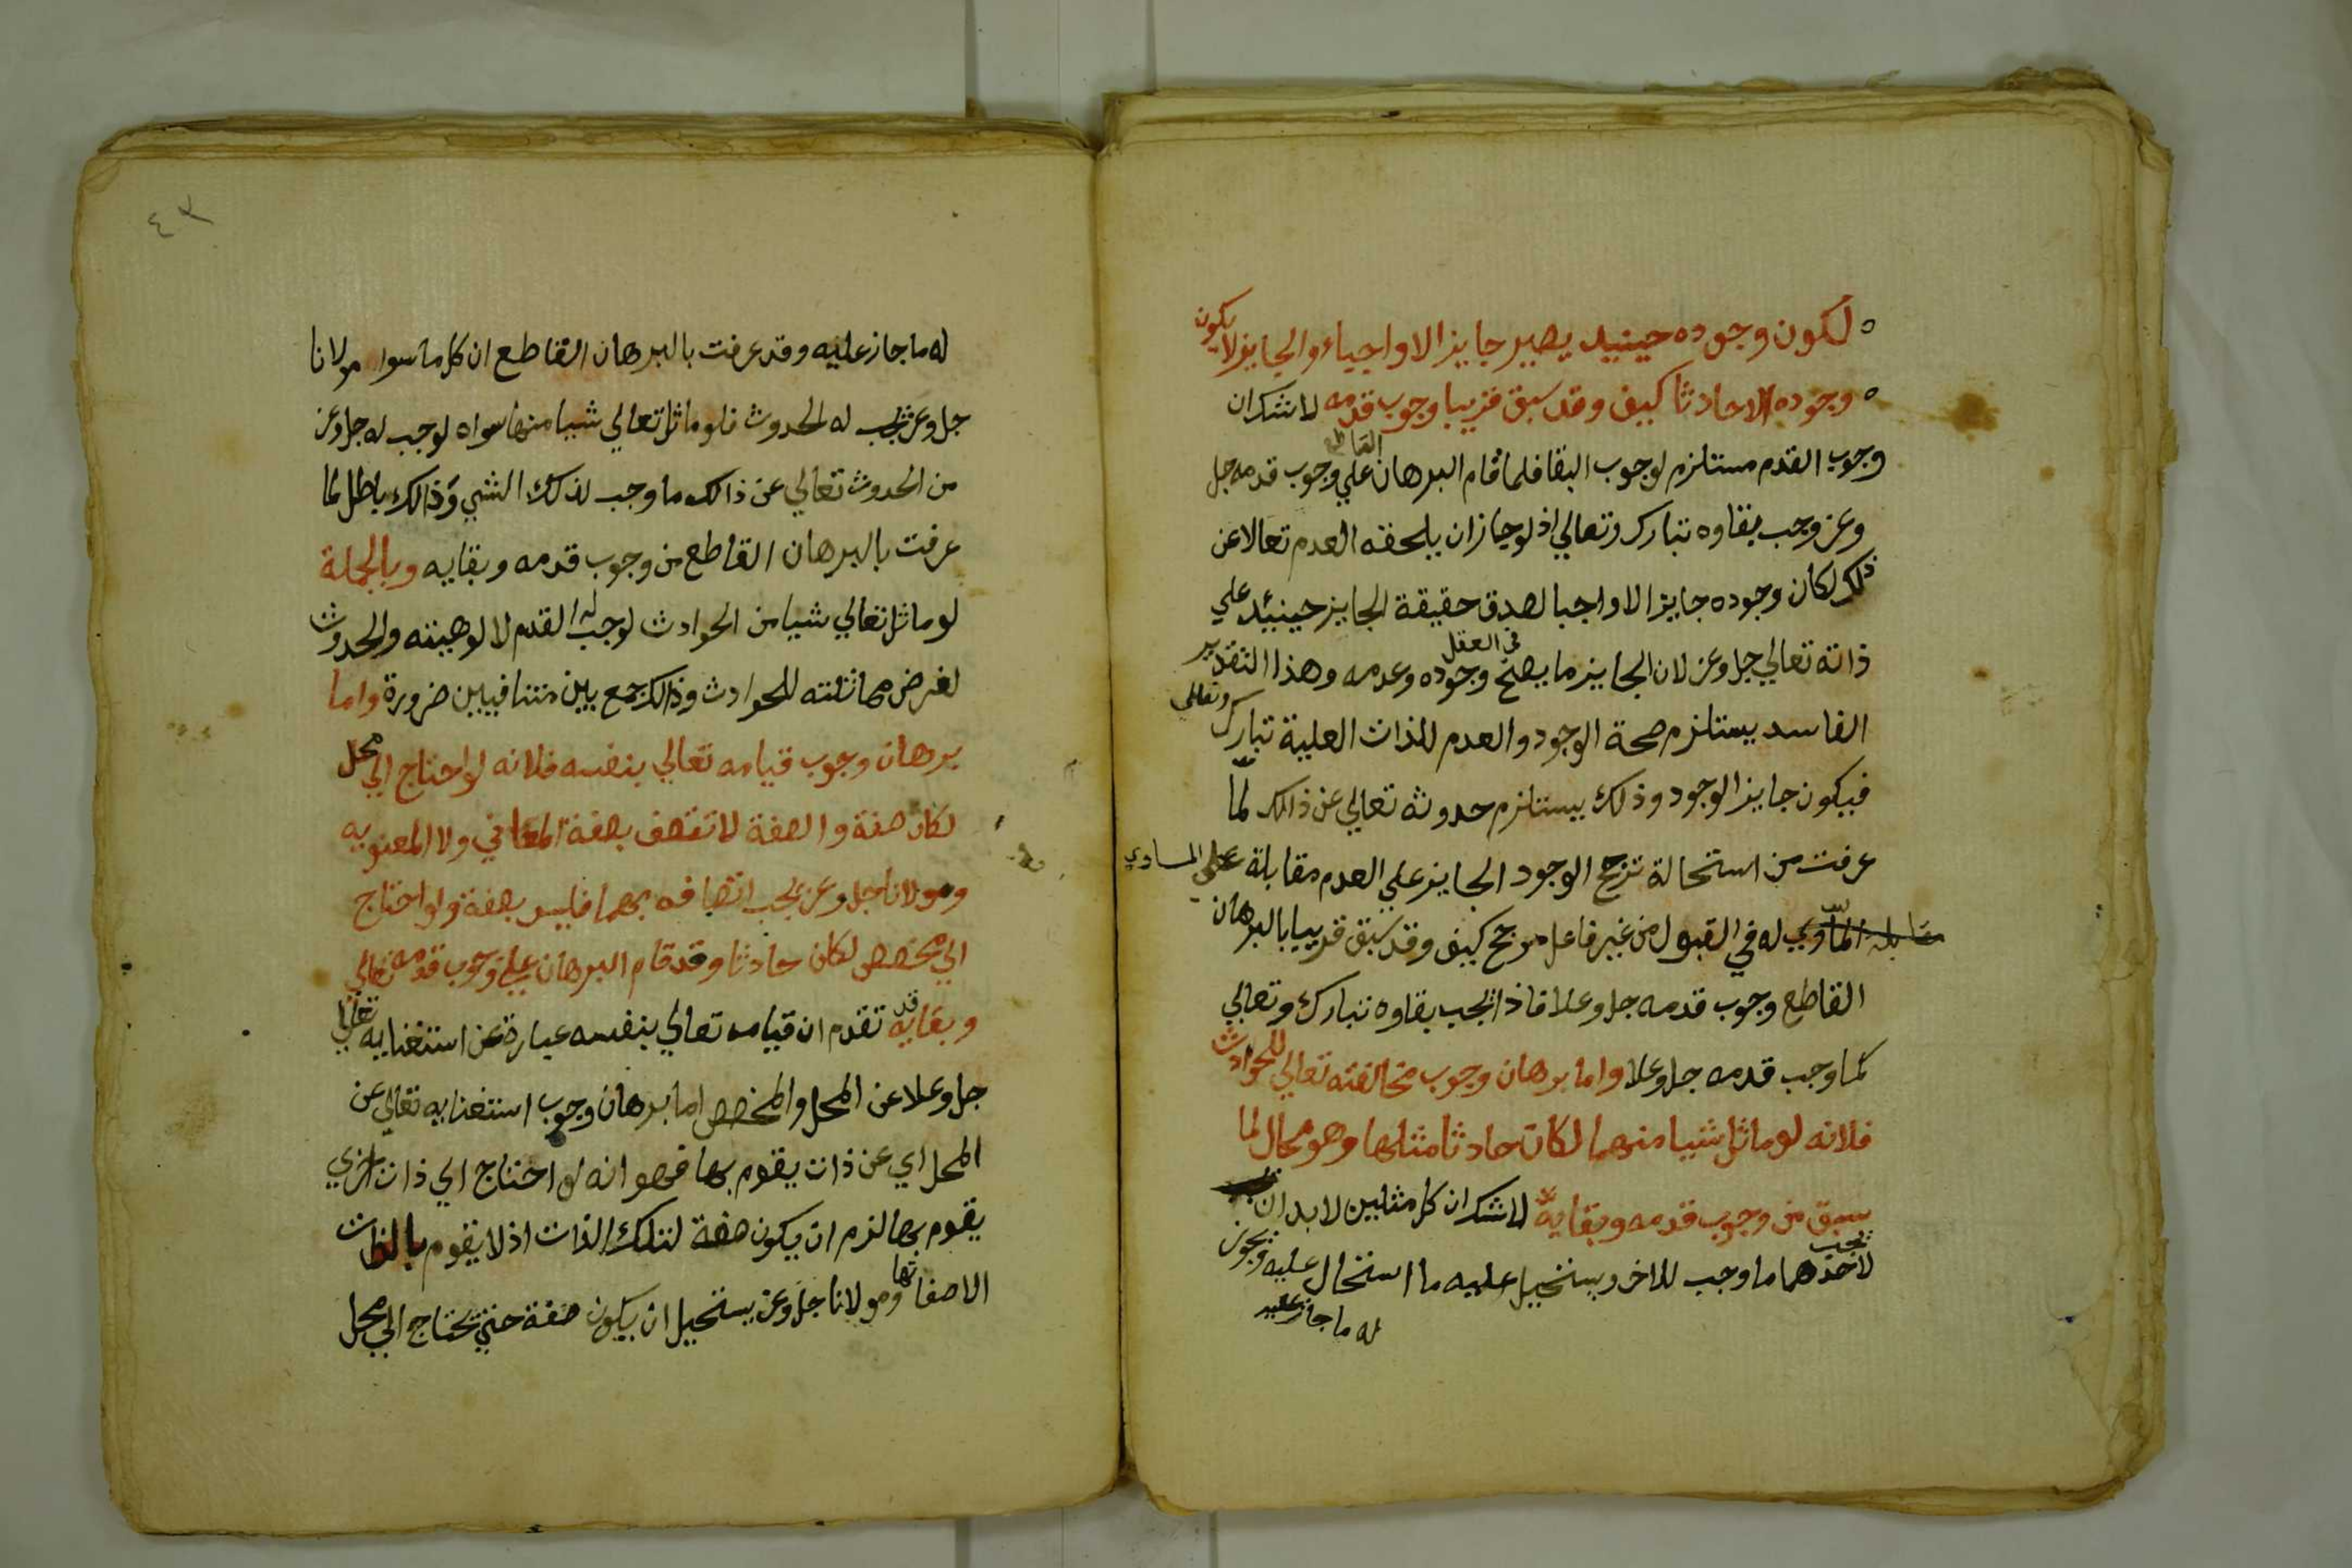 لكون وجوده حينيد يصير جايزا لا واجباء والجايز لا يكون
وجوده الا حادثا كيف وقد سبق قريبا وجوب قدمه لا شك ان
وجوب القدم مستلزم لوجوب البقا فلما قام البرهان القاطع علي وجوب قدمه جل
وعز وجب بقاوه تبارك وتعالي اذ لو جاز ان يلحقه العدم تعالا عن
ذلك لكان وجوده جايزا لا واجبا لصدق حقيقة الجايز حينيئد علي
ذاته تعالي جل وعز لان الجايز ما يصح في العقل وجوده وعدمه وهذا التقدير
الفاسد يستلزم صحة الوجود والعدم للذات العلية تبارك وتعالي
فيكون جايز الوجود وذلك يستلزم حدوثه تعالي عن ذالك لما
عرفت من استحالة ترجح الوجود الجايز علي العدم مقابلة علي المساوي
مقابله المساوي له في القبول من غير فاعل مرجح كيف وقد سبق قريبا بالبرهان
القاطع وجوب قدمه جل وعلا فاذا يجب بقاوه تبارك وتعالي
كما وجب قدمه جل وعلا واما برهان وجوب مخالفته تعالي للحوادث
فلانه لو ماثل شيا منهما لكان حادثا مثلها وهو محال لما
سبق من وجوب قدمه وبقايه لا شك ان كل مثلين لا بد ان
يجب لاحدهما ما وجب للاخر ويستحيل عليه ما استحال عليه ويجوز
له ما جاز عليه
٤٣
له ما جاز عليه وقد عرفت بالبرهان القاطع ان كل ما سوا مولانا
جل وعز يجب له الحدوث فلو ماثل تعالي شيا منها سواه لوجب له جل وعز
من الحدوث تعالي عن ذالك ما وجب لذلك الشي وذالك باطل لما
عرفت بالبرهان القاطع من وجوب قدمه وبقايه وبالجملة
لو ماثل تعالي شيا من الحوادث لوجب له القدم لالوهيته والحدوث
لفرض مماثلته للحوادث وذالك جمع بين متنافيين ضرورة واما
برهان وجوب قيامه تعالي بنفسه فلانه لو احتاج الي محل
لكان صفة والصفة لا تتصف بصفة المعاني ولا المعنويه
ومولانا جل وعز يجب اتصافه بهما فليس بصفة ولو احتاج
الي مخصص لكان حادثا وقد قام البرهان علي وجوب قدمه تعالي
وبقايه قد تقدم ان قيامه تعالي بنفسه عبارة عن استغنايه تعالي
جل وعلا عن المحل والمخصص اما برهان وجوب استغنايه تعالي عن
المحل اي عن ذات يقوم بها فهو انه لو احتاج الي ذات اخري
يقوم بها لزم ان يكون صفة لتلك الذات اذ لا يقوم بالذات
الا صفاتها ومولانا جل وعز يستحيل ان يكون صفة حتي يحتاج الي محل